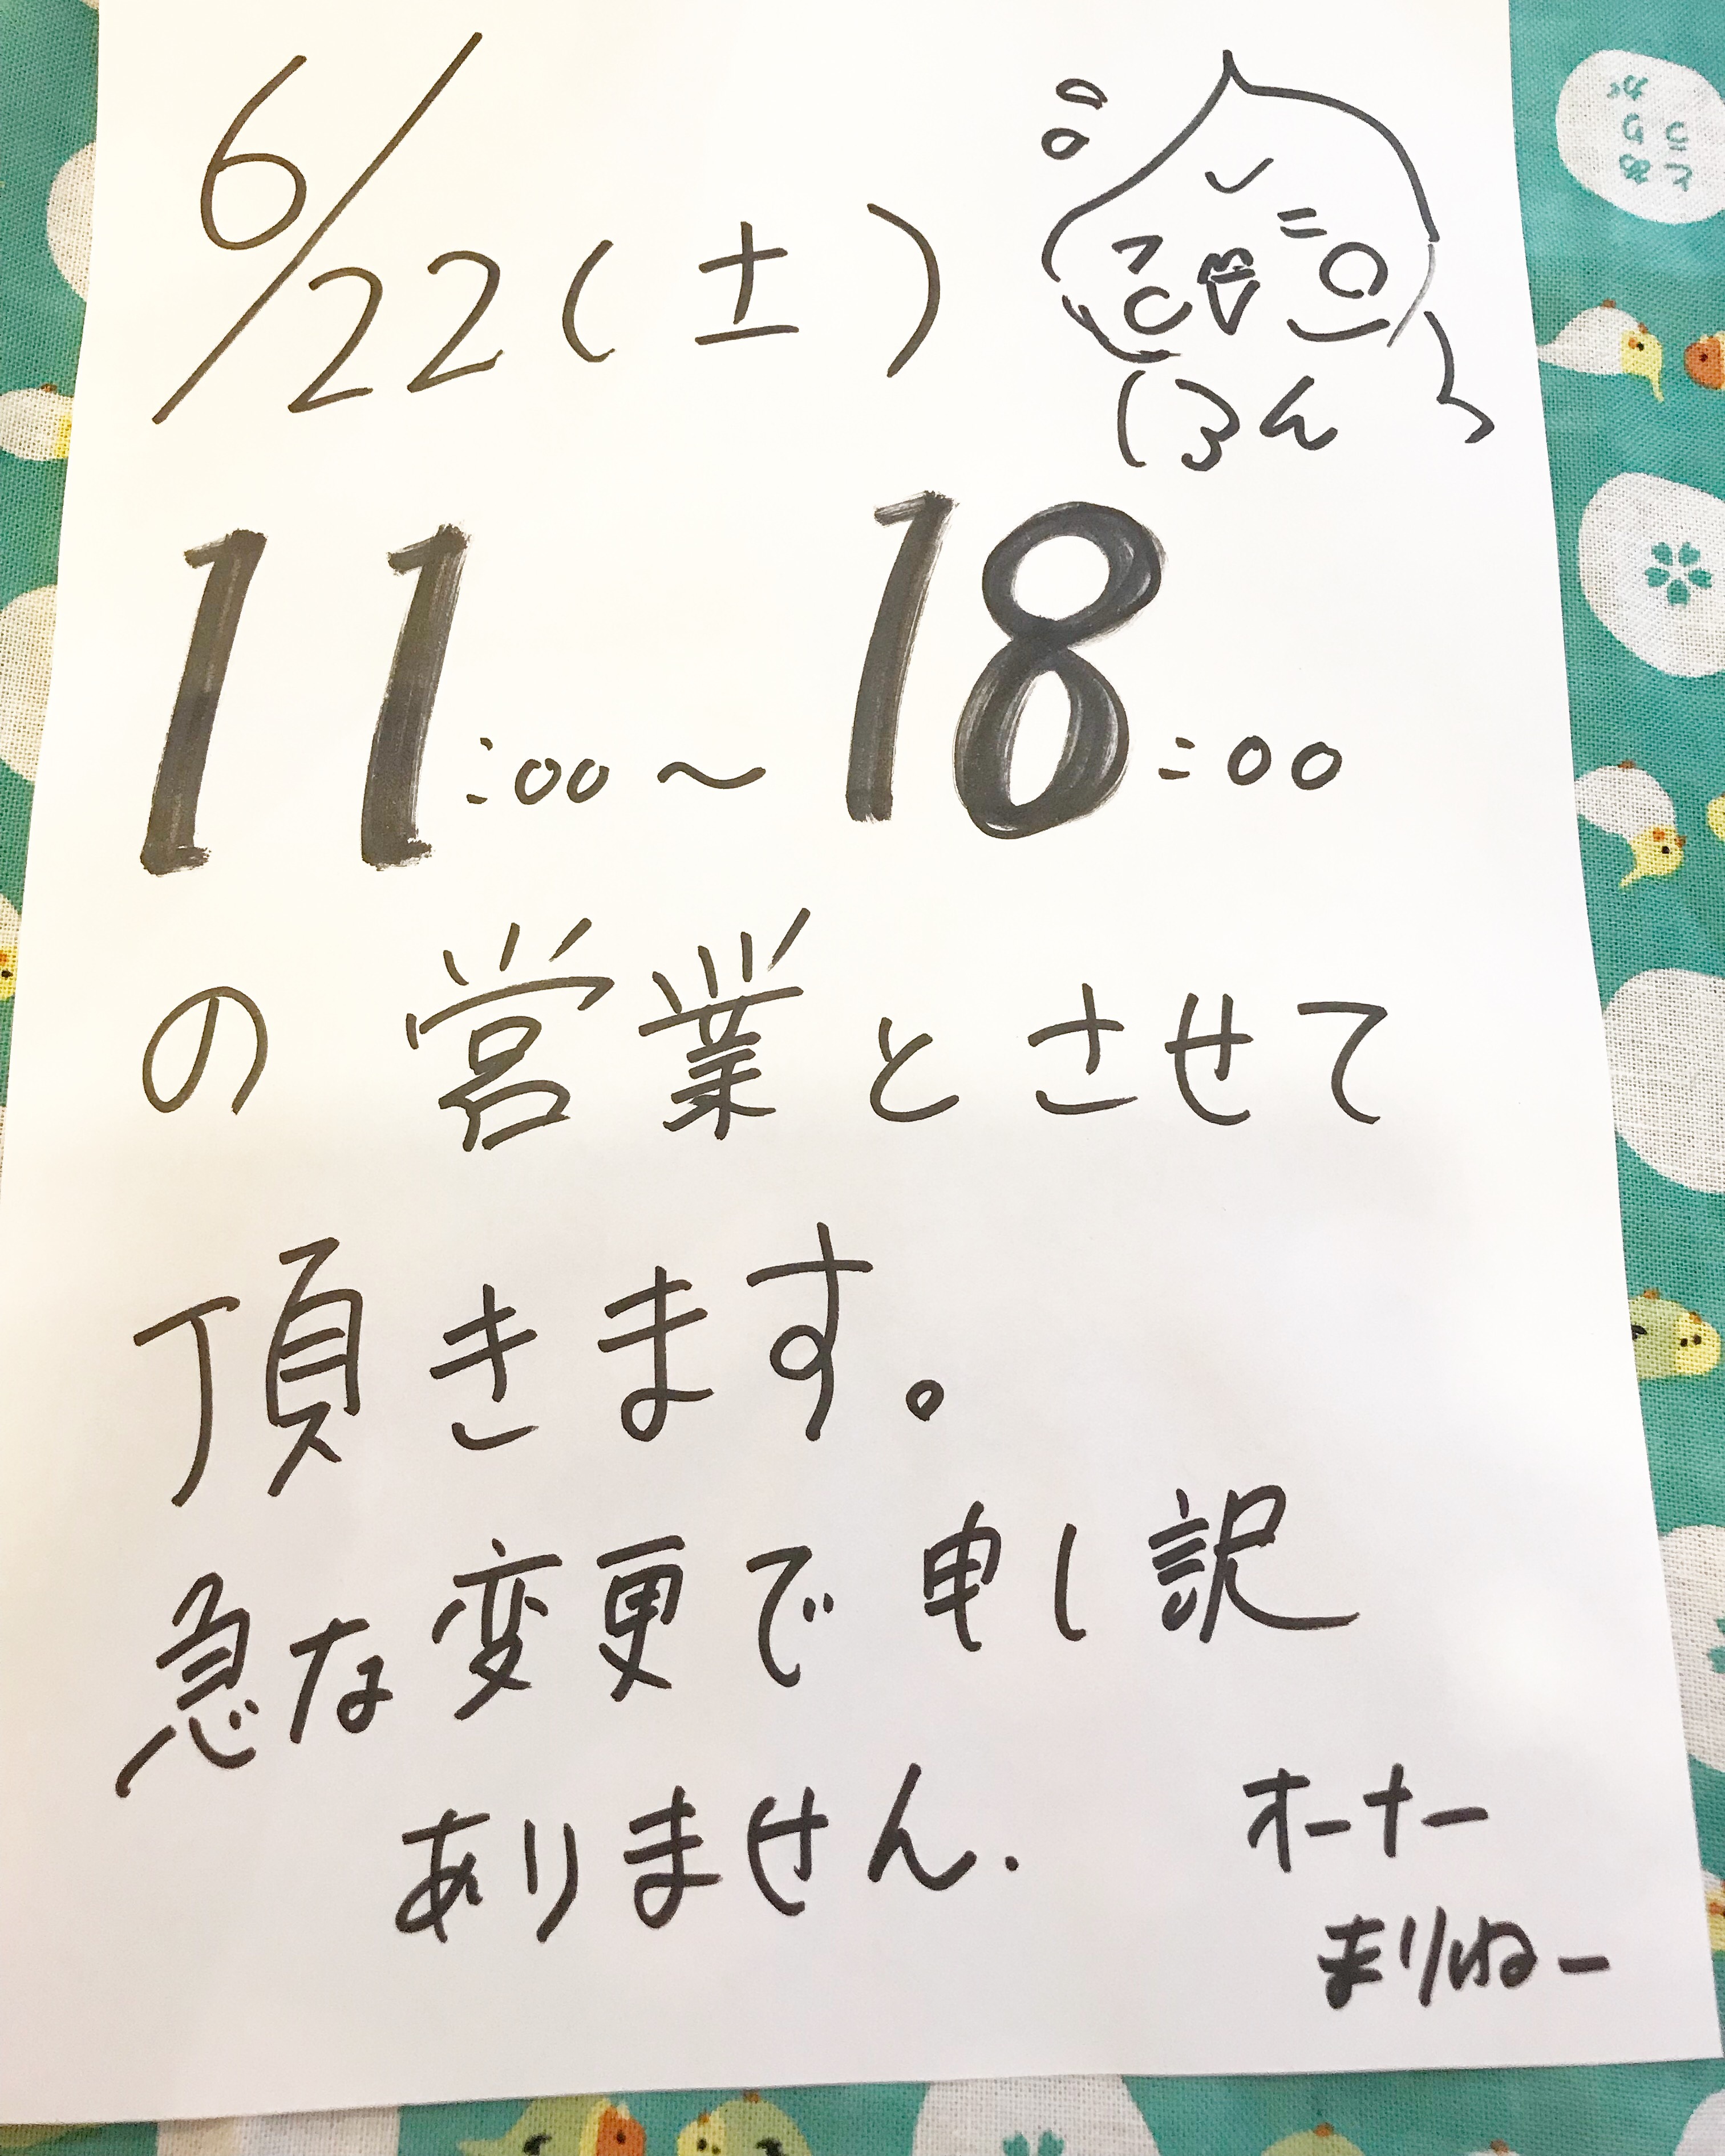 6/22(土)
11:00～18:00
の営業とさせて
頂きます。
急な変更で申し訳
ありません.
オーナー
まりねー